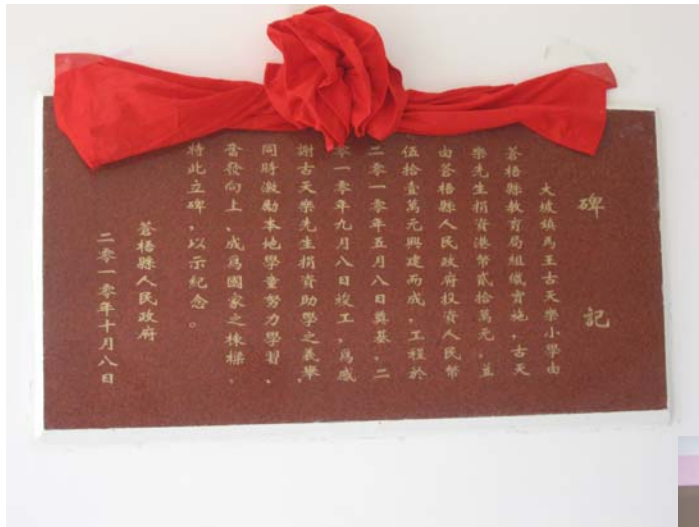 碑記
大坡鎮馬王古天樂小學由
蒼梧縣教育局組織實施，古天
樂先生捐資港幣貳拾萬元，並
由蒼梧縣人民政府投資人民幣
伍拾壹萬元興建而成，工程於
二零一零年五月八日奠基，二
零一零年九月八日竣工，爲感
謝古天樂先生捐資助學之義舉，
同時激勵本地學童努力學習，
奮發向上，成爲國家之棟樑，
特此立碑，以示紀念。
蒼梧縣人民政府
二零一零年十月八日